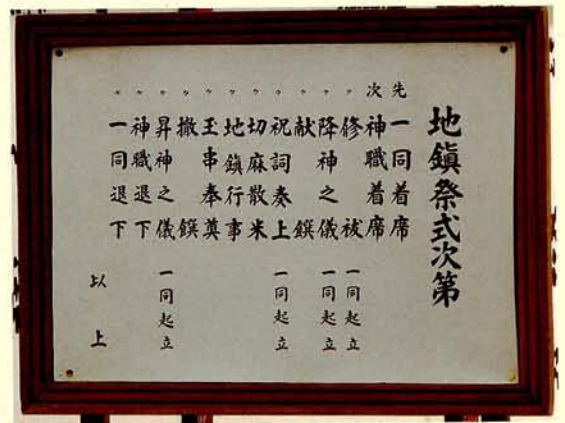 地鎮祭式次第
先 一同着席
次 神職着席
〃 修祓 一同起立
〃 降神之儀 一同起立
〃 献饌
〃 祝詞奏上 一同起立
〃 切麻散米
〃 地鎮行事
〃 玉串奉奠
〃 撤饌
〃 昇神之儀 一同起立
〃 神職退下
〃 一同退下
以上